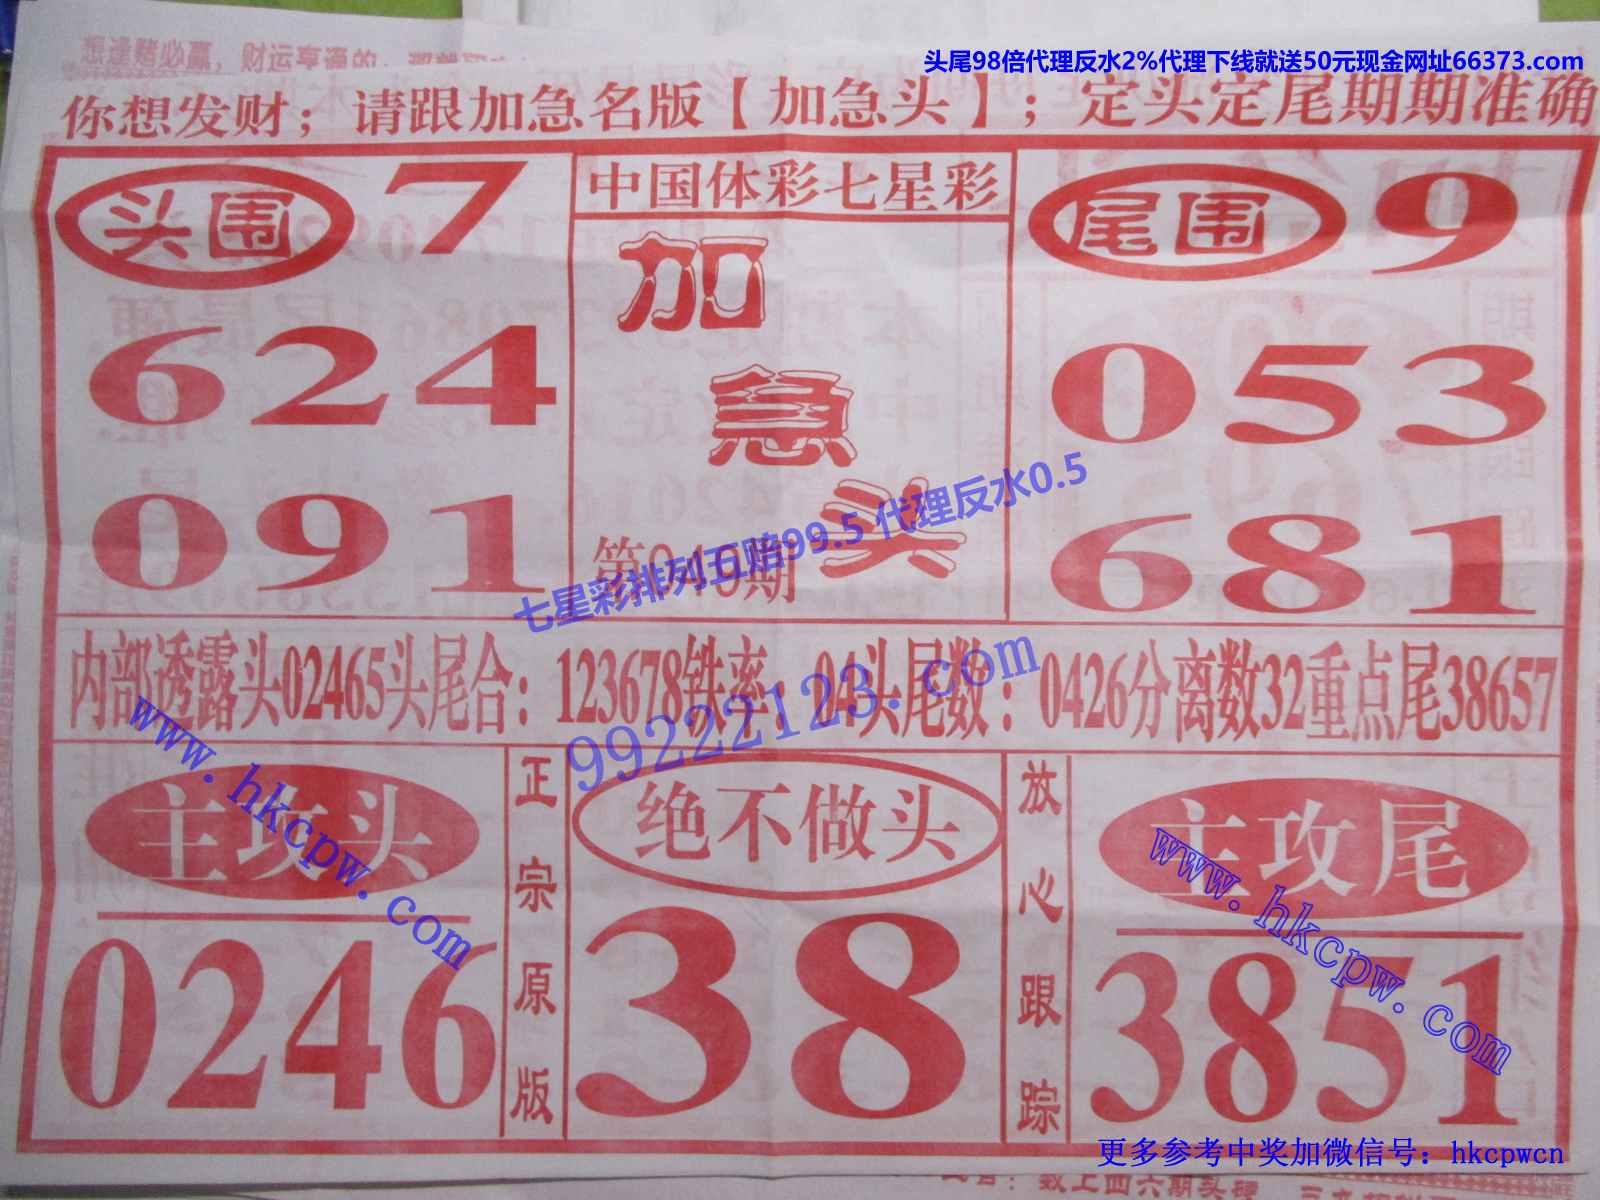 想逢赌必赢，财运亨通的，
头尾98倍代理反水2%代理下线就送50元现金网址66373.com
你想发财；请跟加急名版【加急头】；定头定尾期期准确
头围 7
624
091
中国体彩七星彩
加
急
头
第040期
尾围 9
053
681
七星彩排列五赔99.5 代理反水0.5
内部透露头02465头尾合：123678铁率：04头尾数：0426分离数32重点尾38657
99222123.com
www.hkcpw.com
主攻头
0246
正宗原版
绝不做头
38
放心跟踪
主攻尾
www.hkcpw.com
3851
更多参考中奖加微信号：hkcpwcn